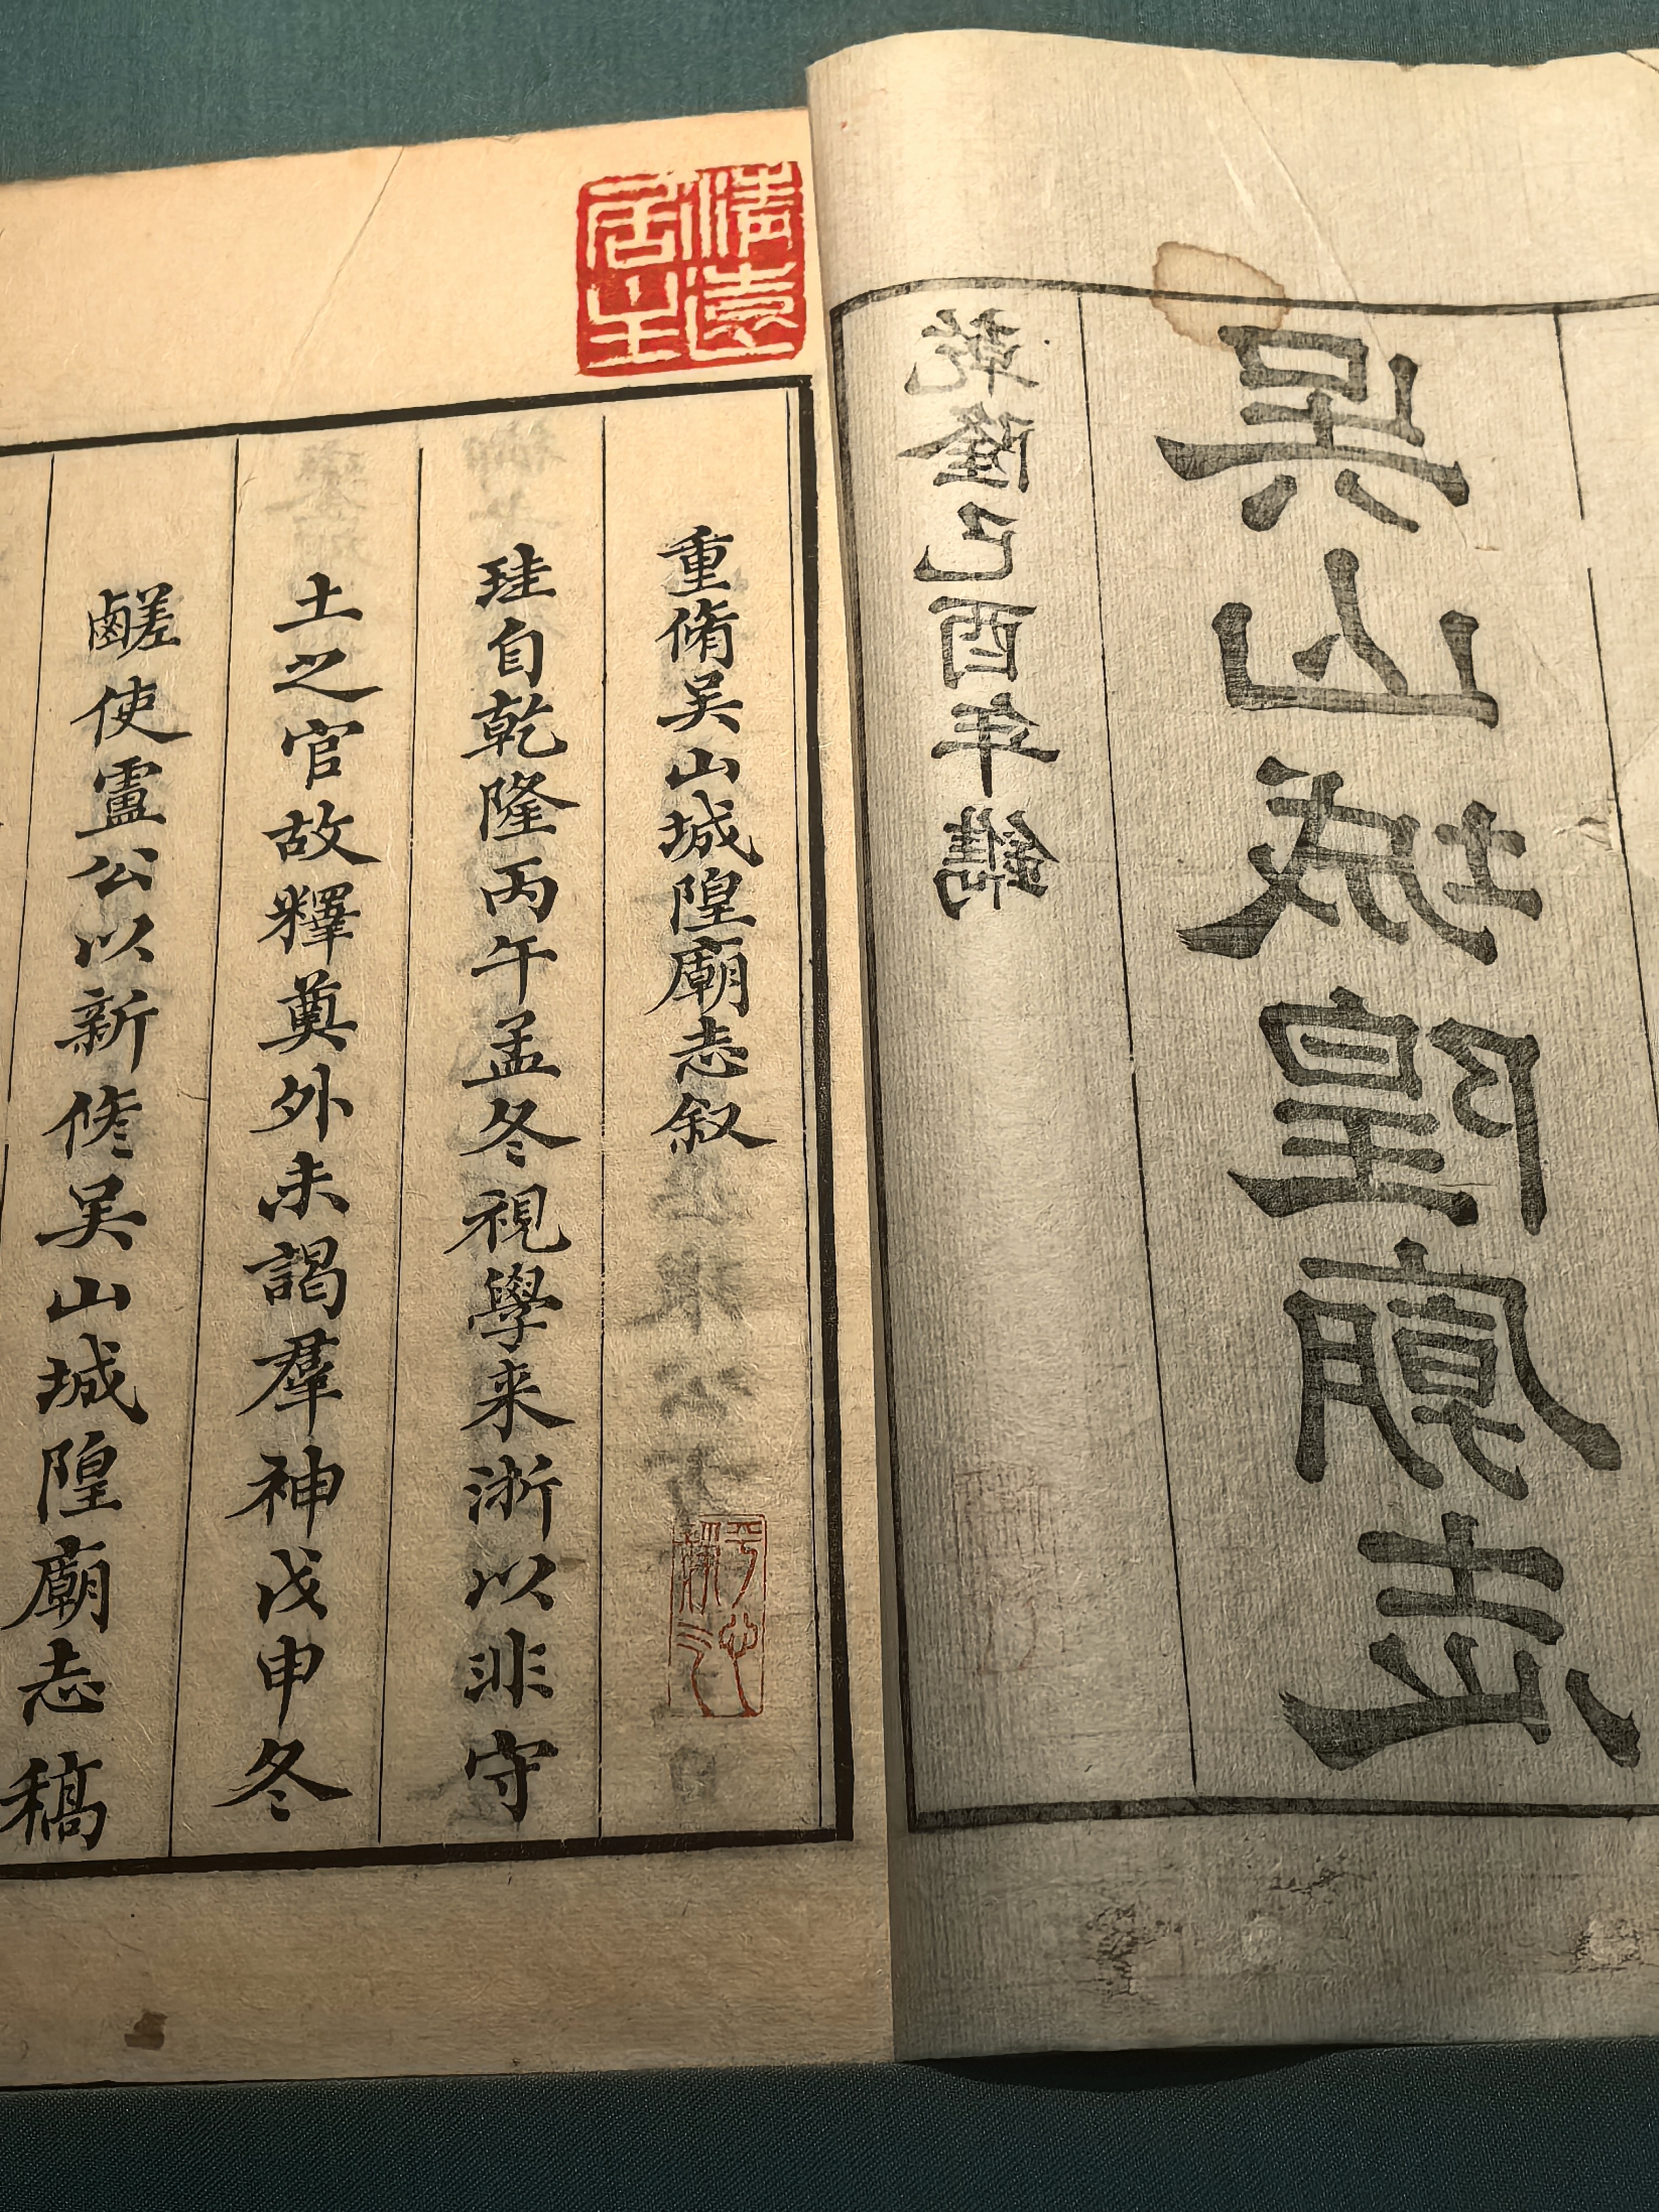 吴山城隍廟志
乾隆己酉年鐫
清遠
居士
重脩吴山城隍廟志叙
珪自乾隆丙午孟冬視學来浙以非守
土之官故釋奠外未謁羣神戊申冬
鹺使盧公以新修吴山城隍廟志稿